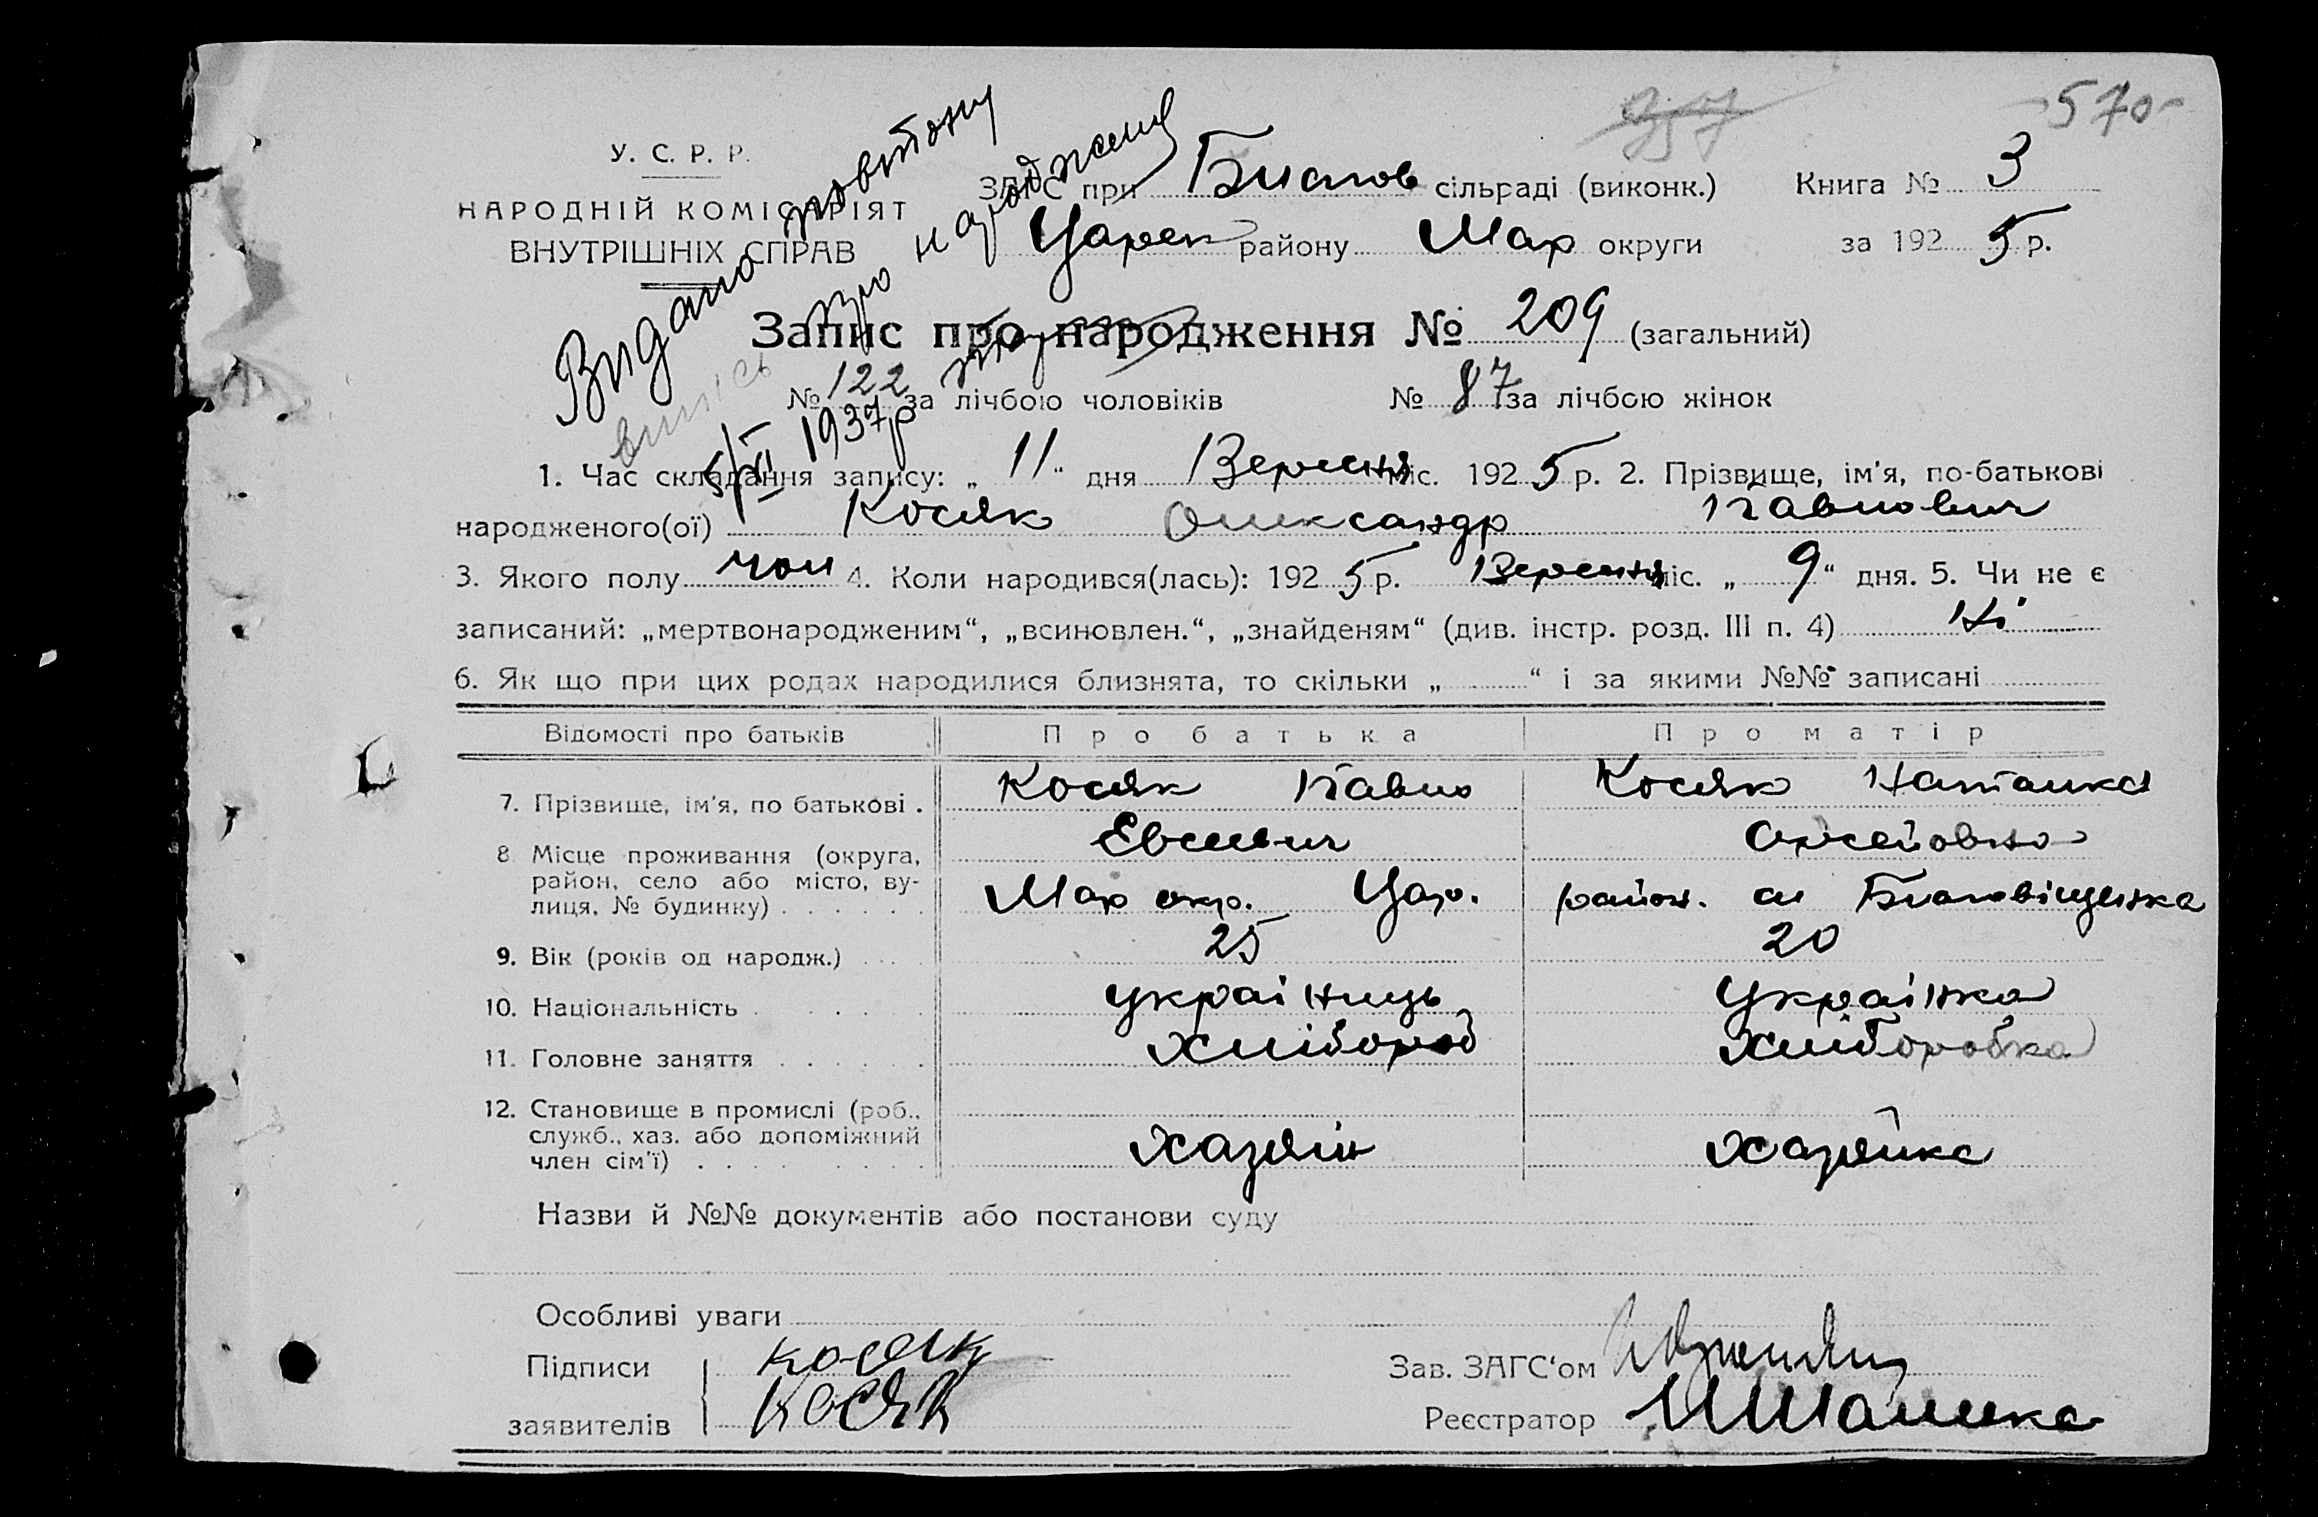 570
У. С. Р. Р.
НАРОДНІЙ КОМІСАРІЯТ
ВНУТРІШНІХ СПРАВ
ЗАГС при Благов сільраді (виконк.) Книга № 3
Царек району Мар округи за 1925 р.
Видано повторну
випись про народження
5/XI 1937р
Запис про народження № 209 (загальний)
№ 122 за лічбою чоловіків № 87 за лічбою жінок
1. Час складання запису: „ 11 “ дня Вересня міс. 1925 р. 2. Прізвище, ім'я, по-батькові
народженого(ої) Косяк Олександр Павлович
3. Якого полу чол 4. Коли народився(лась): 1925 р. Вересня міс. „ 9 “ дня. 5. Чи не є
записаний: „мертвонародженим“, „всиновлен.“, „знайденям“ (див. інстр. розд. III п. 4) Ні
6. Як що при цих родах народилися близнята, то скільки „ “ і за якими №№ записані
Відомості про батьків Про батька Про матір
7. Прізвище, ім'я, по батькові . Косяк Павло Косяк Наталка
Евсеевич
8 Місце проживання (округа,
район, село або місто, ву-
лиця, № будинку) . . . . . . Мар окр. Цар. район. с Благовіщенка
9. Вік (років од народж.) . . . 25 20
10. Національність . . . . . . українець Українка
11. Головне заняття . . . . . . хлібороб хліборобка
12. Становище в промислі (роб.,
служб., хаз. або допоміжний
член сім'ї) . . . . . . . Хазяїн Хазяйка
Назви й №№ документів або постанови суду
Особливі уваги
Підписи косяк Зав. ЗАГС'ом
заявителів Косяк Реєстратор